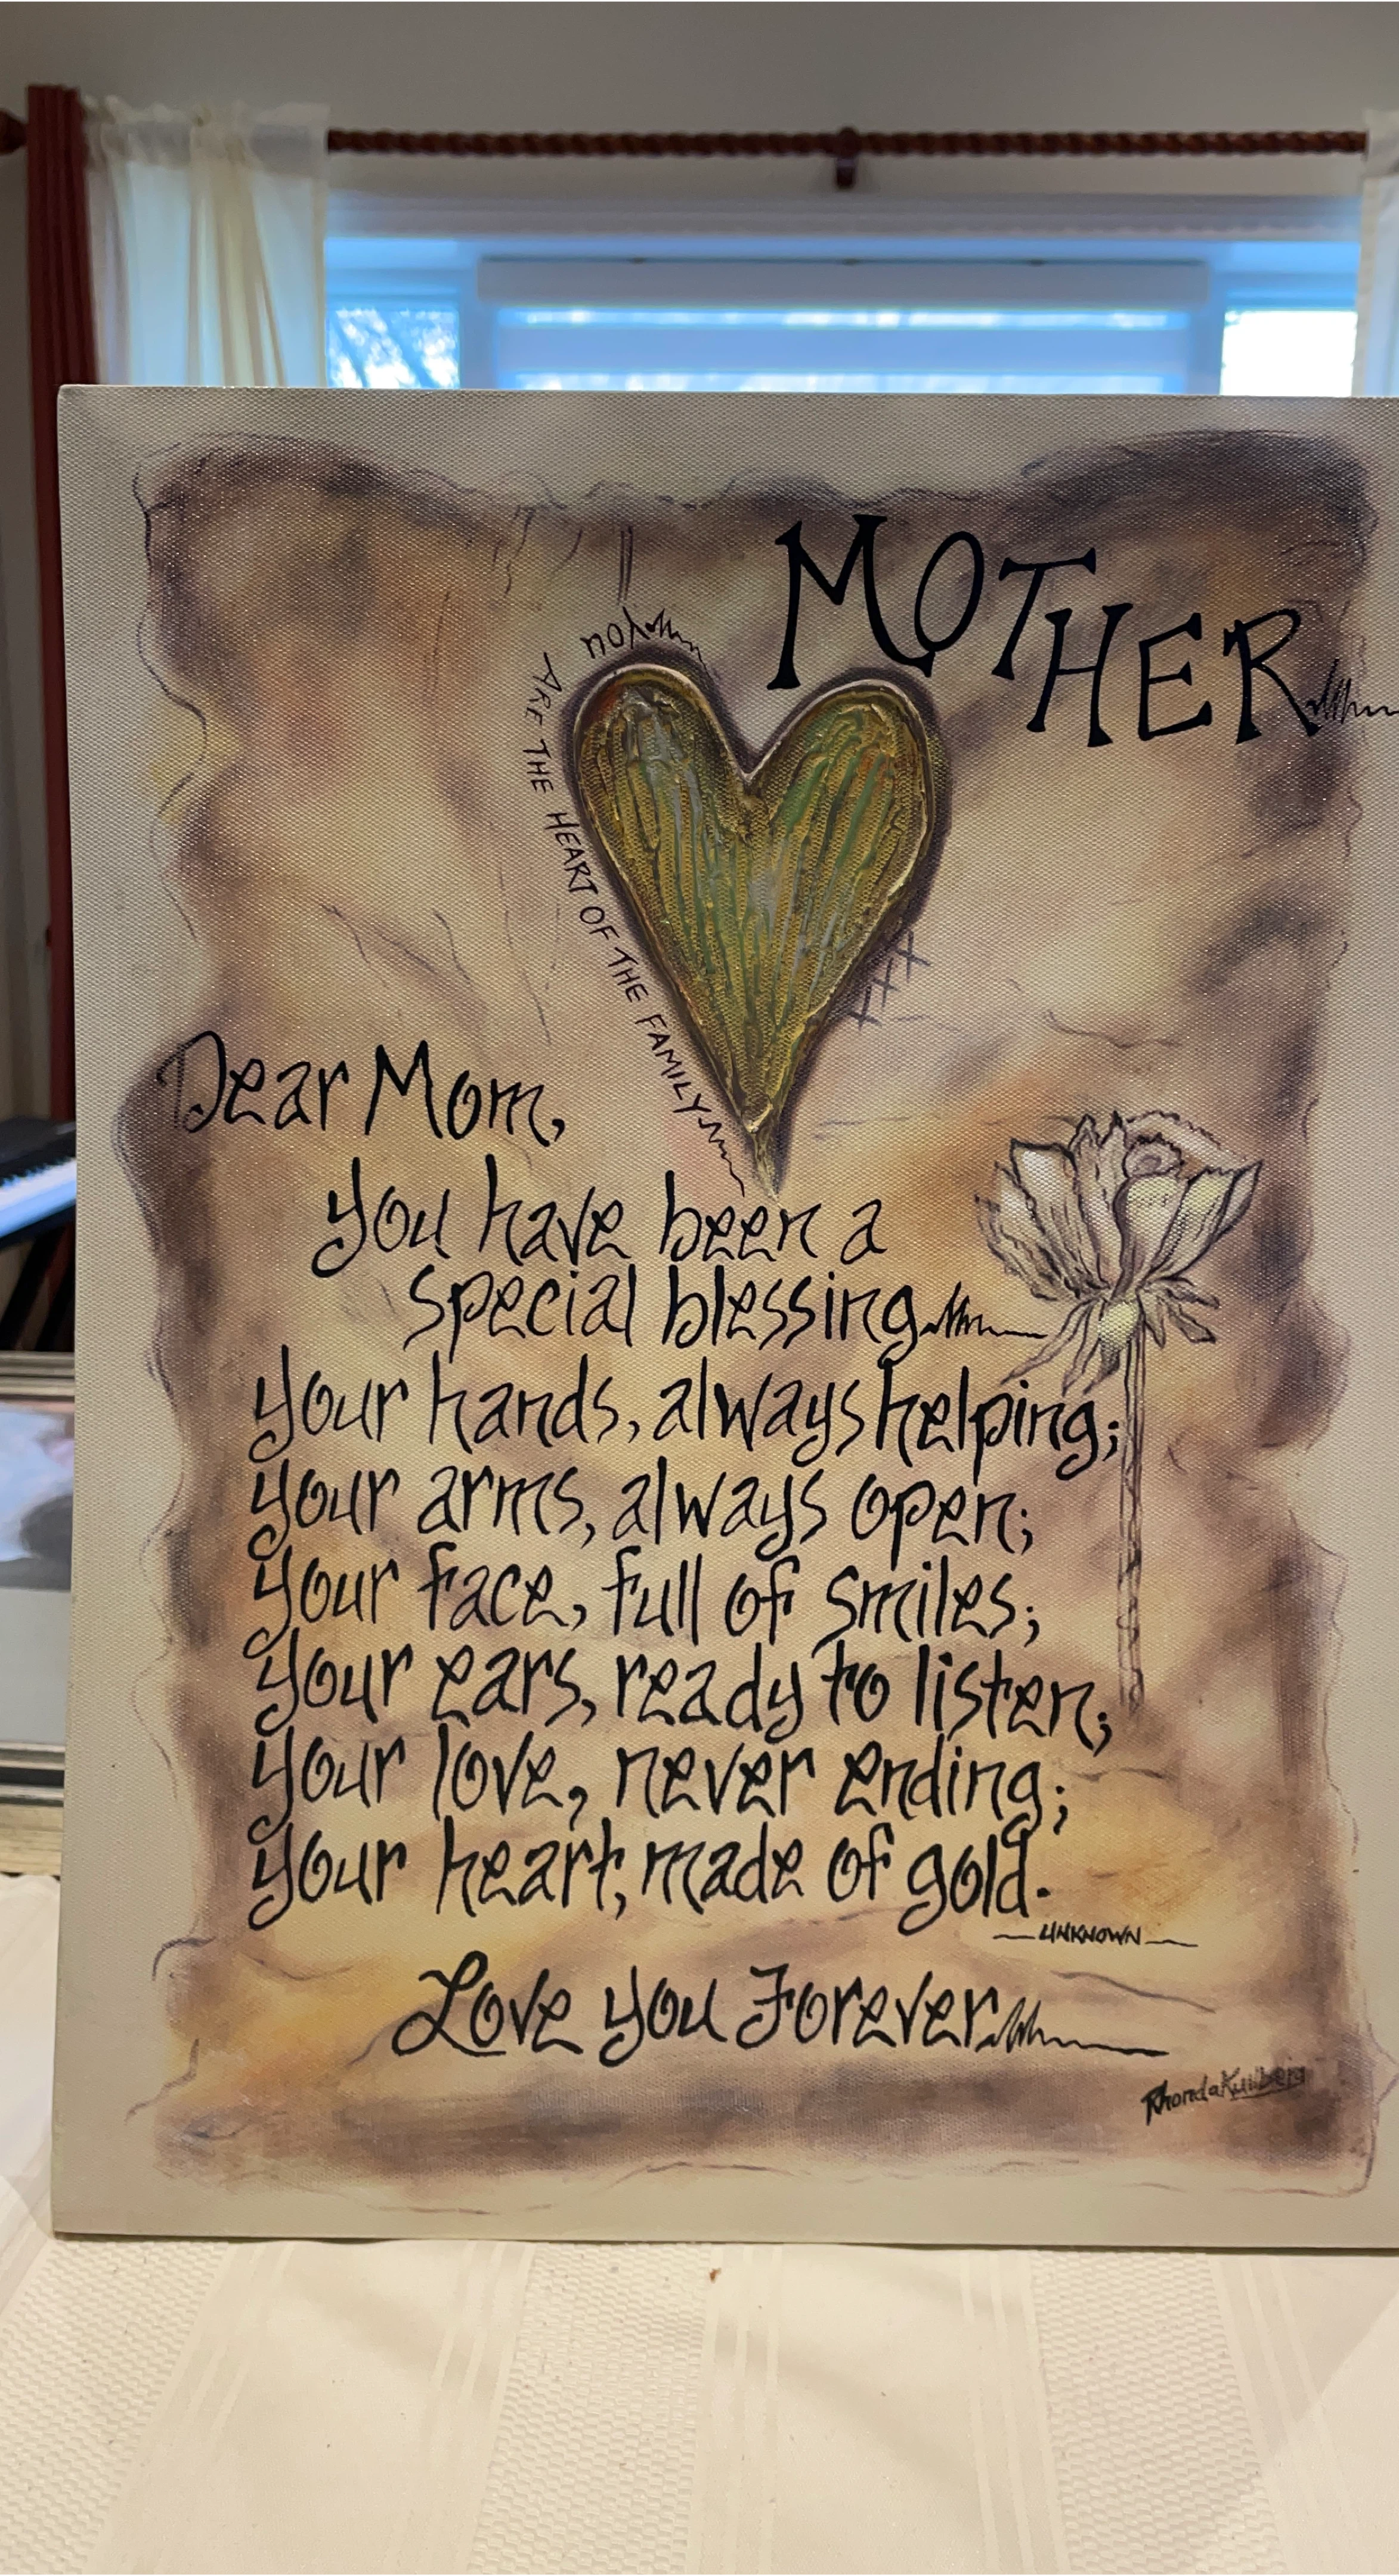 MOTHER
you
ARE THE HEART OF THE FAMILY
Dear Mom,
you have been a
special blessing
your hands, always helping;
your arms, always open;
your face, full of smiles;
your ears, ready to listen;
your love, never ending;
your heart, made of gold.
—UNKNOWN—
Love you Forever
Rhonda